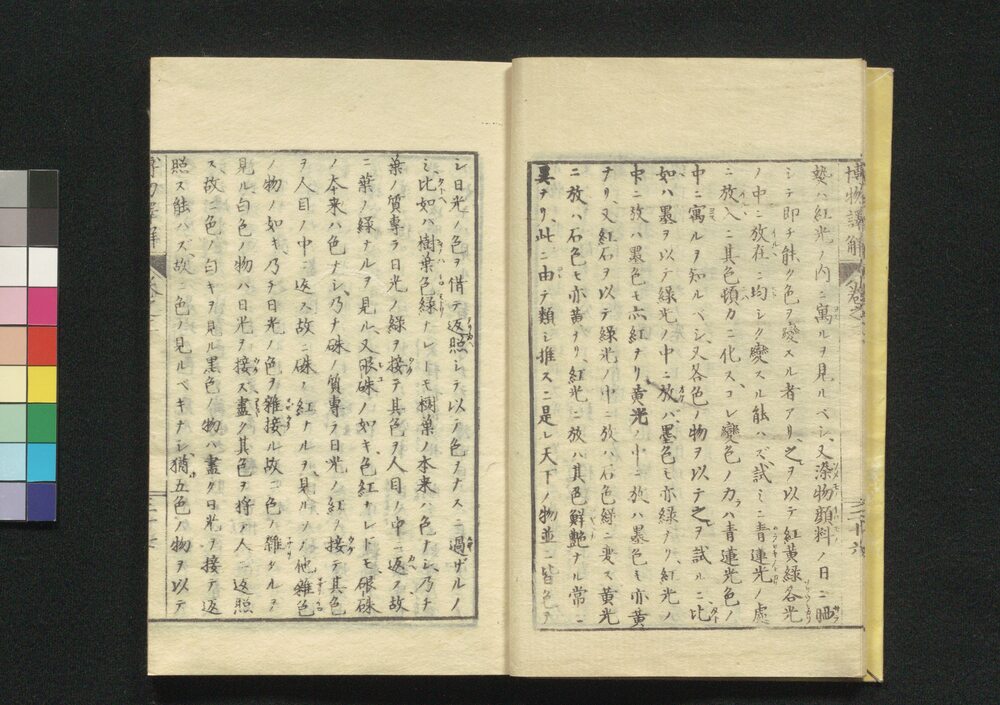 博物譯解
熱ハ紅光ノ内ニ寓ルヲ見ルベシ、又染物顔料ノ日ニ晒
シテ即チ能ク色ヲ變スル者アリ、之ヲ以テ紅黄綠各光
ノ中ニ放在ニ均シク變スル能ハズ、試ミニ青蓮光ノ處
ニ放入ニ其色頓カニ化ス、コレ變色ノ力ハ青蓮光色ノ
中ニ寓ルヲ知ルベシ、又各色ノ物ヲ以テ之ヲ試ルニ、比
如ハ墨ヲ以テ綠光ノ中ニ放バ墨色モ亦綠ナリ、紅光ノ
中ニ放ハ墨色モ亦紅ナリ、黄光ノ中ニ放ハ墨色モ亦黄
ナリ、又紅石ヲ以テ綠光ノ中ニ放ハ石色綠ニ變ス黄光
ニ放ハ石色モ亦黄ナリ、紅光ニ放ハ其色鮮艶ナル常ニ
異ナリ、此ニ由テ類シ推スニ是レ天下ノ物並ニ皆色ナ
シ日光ノ色ヲ借テ返照シテ以テ色ヲナスニ過ザルノ
ミ、比如ハ樹葉色綠ナレトモ樹葉ノ本来ハ色ナシ、乃チ
葉ノ質專ラ日光ノ綠ヲ接テ其色ヲ人目ノ中ニ返ス故
ニ葉ノ綠ナルヲ見ル、又硍硃ノ如キ色紅ナレドモ硍硃
ノ本来ハ色ナシ、乃ナ硃ノ質專ラ日光ノ紅ヲ接テ其色
ヲ人目ノ中ニ返ス故ニ硃ノ紅ナルヲ見ル、ソノ他雜色
ノ物ノ如キ、乃チ日光ノ色ヲ雜接ル故ニ色ノ雜タルヲ
見ル白色ノ物ハ日光ヲ接ス盡ク其色ヲ將テ人ニ返照
ス、故ニ色ノ白キヲ見ル黒色ノ物ハ盡ク日光ヲ接テ返
照ス能ハズ、故ニ色ノ見ルベキナシ猶五色ノ物ヲ以テ